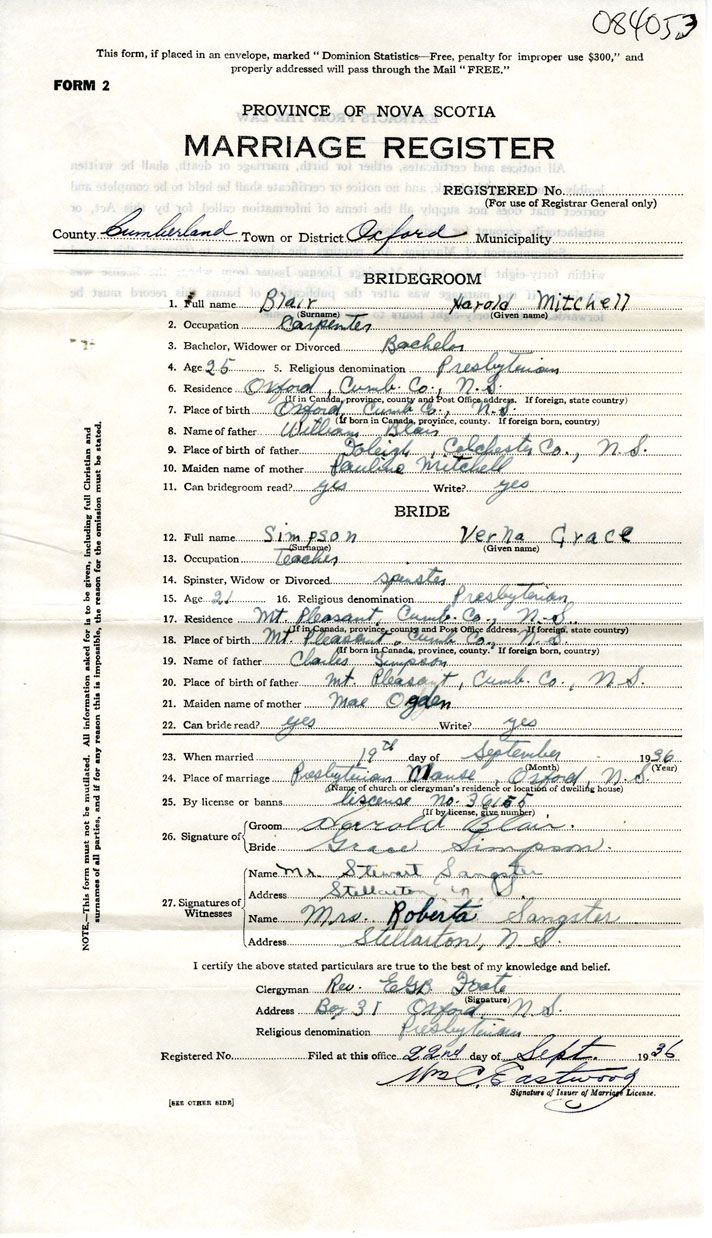 084053
This form, if placed in an envelope, marked “ Dominion Statistics—Free, penalty for improper use $300,” and
properly addressed will pass through the Mail “ FREE.”
FORM 2
PROVINCE OF NOVA SCOTIA
MARRIAGE REGISTER
REGISTERED No.
(For use of Registrar General only)
County Cumberland Town or District Oxford Municipality
BRIDEGROOM
1. Full name Blair Harold Mitchell
(Surname) (Given name)
2. Occupation Carpenter
3. Bachelor, Widower or Divorced Bachelor
4. Age 25 5. Religious denomination Presbyterian
6. Residence Oxford, Cumb. Co., N.S.
(If in Canada, province, county and Post Office address. If foreign, state country)
7. Place of birth Oxford, Cumb Co., N.S.
(If born in Canada, province, county. If foreign born, country)
8. Name of father William Blair
9. Place of birth of father Foleigh, Colchester Co., N.S.
10. Maiden name of mother Pauline Mitchell
11. Can bridegroom read? yes Write? yes
BRIDE
12. Full name Simpson Verna Grace
(Surname) (Given name)
13. Occupation Teacher
14. Spinster, Widow or Divorced spinster
15. Age 21 16. Religious denomination Presbyterian
17. Residence Mt. Pleasant, Cumb. Co., N.S.
(If in Canada, province, county and Post Office address. If foreign, state country)
18. Place of birth Mt. Pleasant, Cumb Co., N.S.
(If born in Canada, province, county. If foreign born, country)
19. Name of father Charles Simpson
20. Place of birth of father Mt. Pleasant, Cumb. Co., N.S.
21. Maiden name of mother Mae Ogden
22. Can bride read? yes Write? yes
23. When married 19th day of September 1936
(Month) (Year)
24. Place of marriage Presbyterian Manse, Oxford, N.S.
(Name of church or clergyman's residence or location of dwelling house)
25. By license or banns liscense no. 36155
(If by license, give number)
26. Signature of Groom Harrold Blair
Bride Grace Simpson
27. Signatures of Witnesses
Name Mr. Stewart Sangster
Address Stellarton
Name Mrs. Roberta Sangster
Address Stellarton, N.S.
I certify the above stated particulars are true to the best of my knowledge and belief.
Clergyman Rev. EGB Foote
(Signature)
Address Box 31 Oxford N.S.
Religious denomination Presbyterian
Registered No. Filed at this office 22nd day of Sept. 1936
Wm C. Eastwood
Signature of Issuer of Marriage License.
[SEE OTHER SIDE]
NOTE.—This form must not be mutilated. All information asked for is to be given, including full Christian and
surnames of all parties, and if for any reason this is impossible, the reason for the omission must be stated.